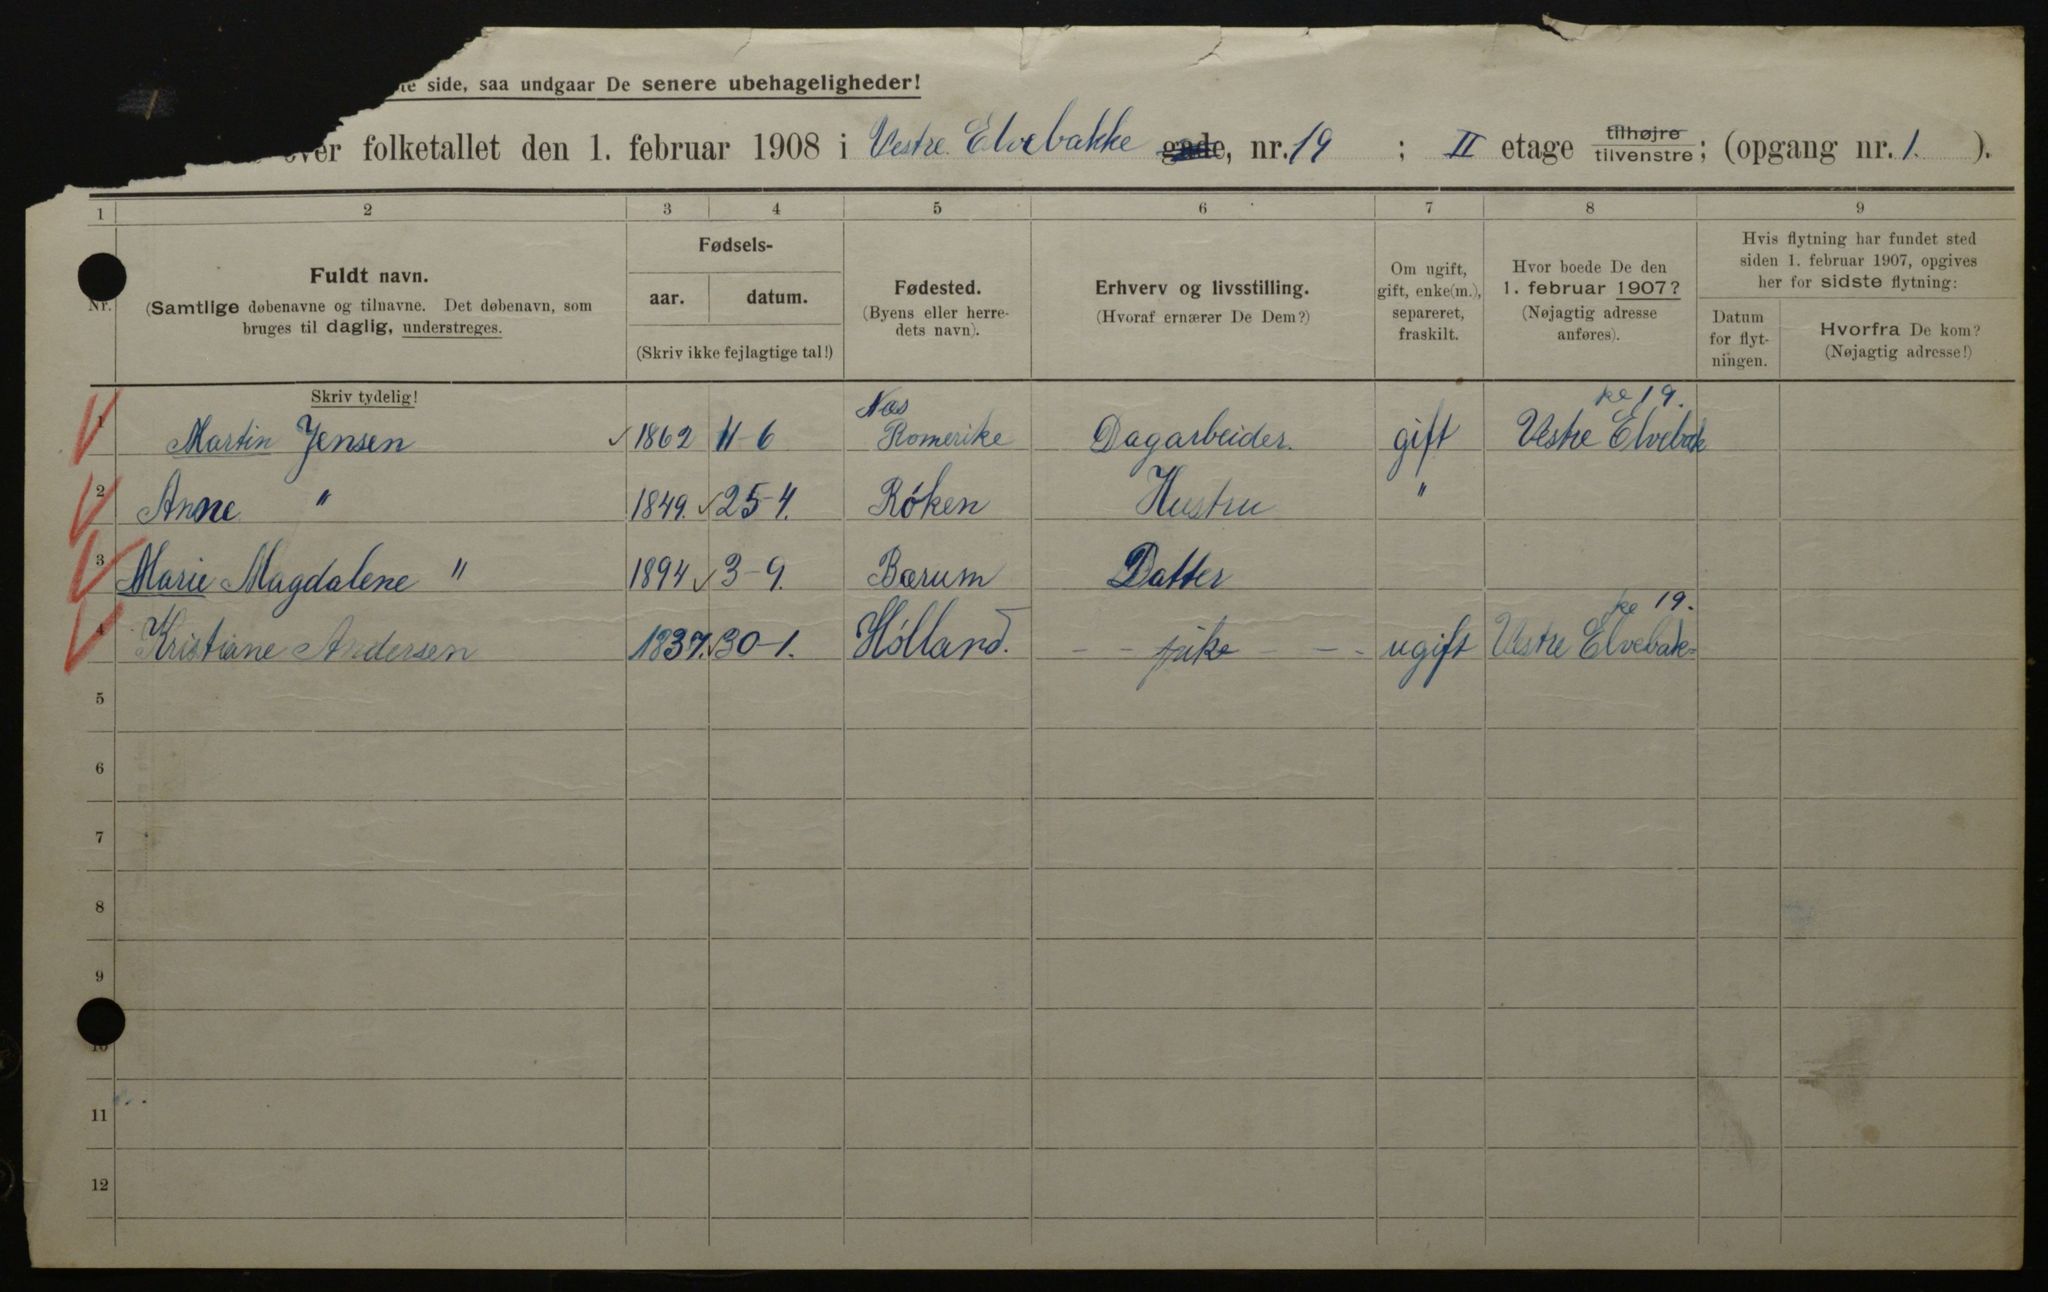 te side, saa undgaar De senere ubehageligheder!
over folketallet den 1. februar 1908 i Vestre Elvebakke gade, nr. 19 ; II etage tilhøjre tilvenstre; (opgang nr. 1. ).
1 2 3 4 5 6 7 8 9
Nr.
Fuldt navn.
(Samtlige døbenavne og tilnavne. Det døbenavn, som
bruges til daglig, understreges.
Fødsels-
aar. datum.
(Skriv ikke fejlagtige tal!)
Fødested.
(Byens eller herre-
dets navn).
Erhverv og livsstilling.
(Hvoraf ernærer De Dem?)
Om ugift,
gift, enke(m.),
separeret,
fraskilt.
Hvor boede De den
1. februar 1907?
(Nøjagtig adresse
anføres).
Hvis flytning har fundet sted
siden 1. februar 1907, opgives
her for sidste flytning:
Datum
for flyt-
ningen.
Hvorfra De kom?
(Nøjagtig adresse!)
Skriv tydelig!
Nes ke 19.
1 Martin Jensen 1862 11-6 Romerike Dagarbeider. gift Vestre Elvebak
2 Anne " 1849. 25-4. Røken Hustru "
3 Marie Magdalene " 1894 3-9. Bærum Datter
ke 19.
4 Kristiane Andersen 1837. 30-1. Hølland. - - pike - - - ugift Vestre Elvebak-
5
6
7
8
9
10
11
12